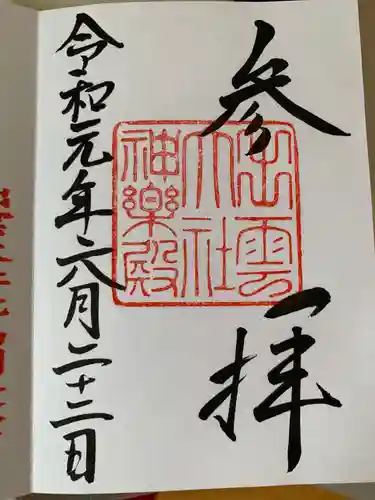 参拝
出雲
大社
神楽殿
令和元年六月二十二日